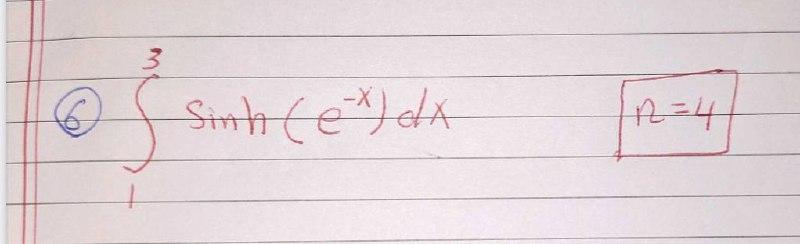 ⑥ ∫₁³ Sinh (e⁻ˣ) dx n=4